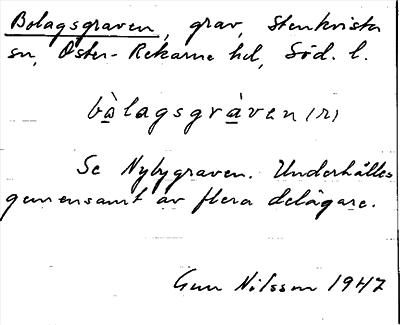 Bolagsgraven, grav, Stenkvista
sn, Öster-Rekarne hd, Söd. l.
bòlagsgràven (r)
Se Nybygraven. Underhålles
gemensamt av flera delägare.
Gun Nilsson 1947